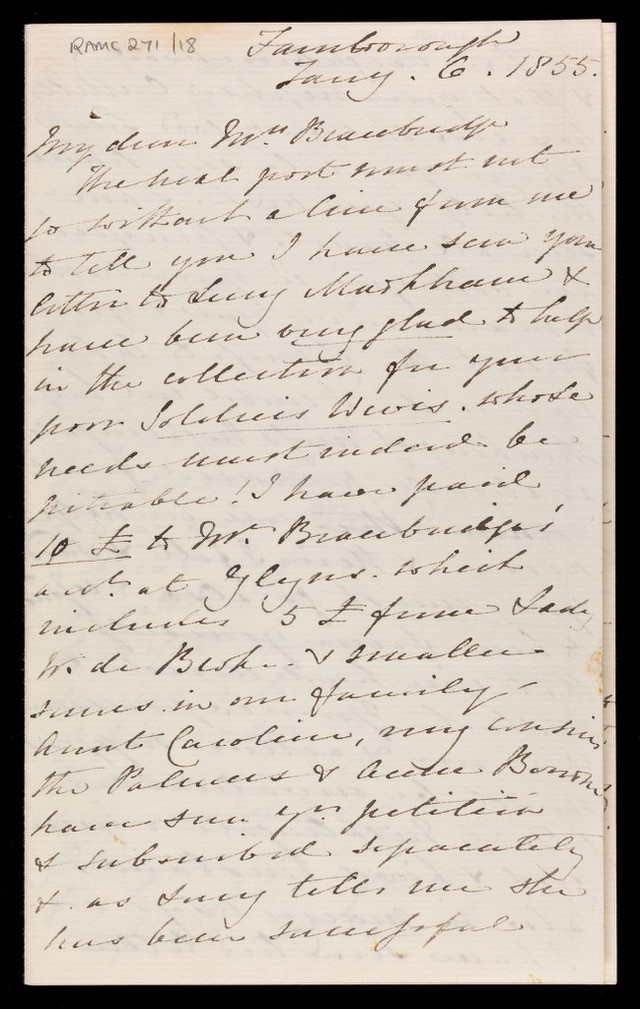 RAMC 271/18
Farnborough
Jany. 6. 1855.
My dear Mrs. Bracebridge
The next post must not
go without a line from me
to tell you I have seen your
letter to Lucy Markham &
have been very glad to help
in the collection for your
poor Soldiers Wives. whose
needs must indeed be
pitiable! I have paid
10 £ to Mr. Bracebridge's
acct. at Glyns. which
includes 5 £ from Lady
W. de Broke & smaller
sums in our family -
Aunt Caroline, my cousins
the Palmers & Anne
have seen yr. petition
& subscribed separately
& as Lucy tells me she
has been successful